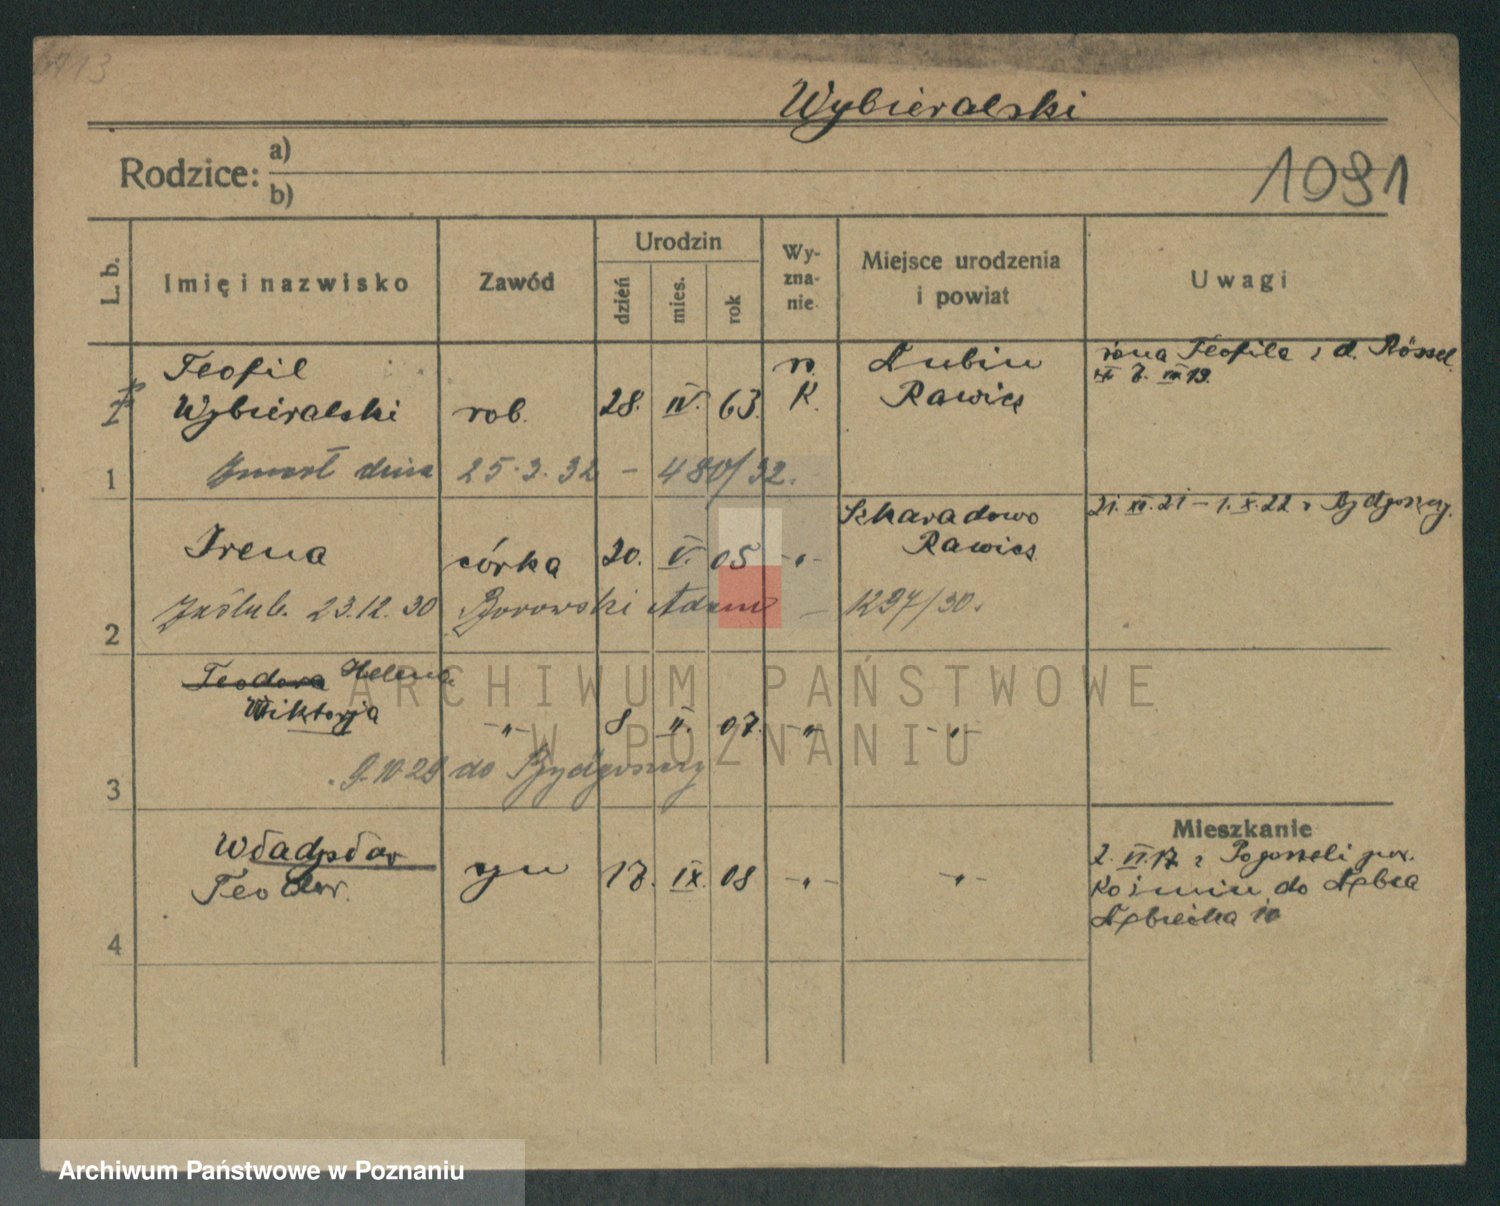 Wybieralski
Rodzice: a)
b)
1091
L. b.
Imię i nazwisko
Zawód
Urodzin
dzień
mies.
rok
Wy-
zna-
nie
Miejsce urodzenia
i powiat
Uwagi
1
Teofil
Wybieralski
rob.
28. IV. 63.
r.
K.
Łubin
Rawicz
żona Teofila z d. Rössel
Zmarł dnia 25.3.32 – 480/32.
2
Irena
córka
20. V. 05
-„-
Szkaradowo
Rawicz
21. XII.21 – 1. X.22 z Bydgoszczy.
Zaślub. 23.12.30 Borowski Adam – 1297/30.
3
Teodora Helena
Wiktorja
-„-
8 II. 07.
-„-
-„-
9.10 29 do Bydgoszczy
4
Władysław
Teodor.
syn
17. IX. 08
-„-
-„-
Mieszkanie
2. VI.17 z Pogorzeli pow.
Koźmin do Dębca
Dębiecka 10
ARCHIWUM PAŃSTWOWE
W POZNANIU
Archiwum Państwowe w Poznaniu